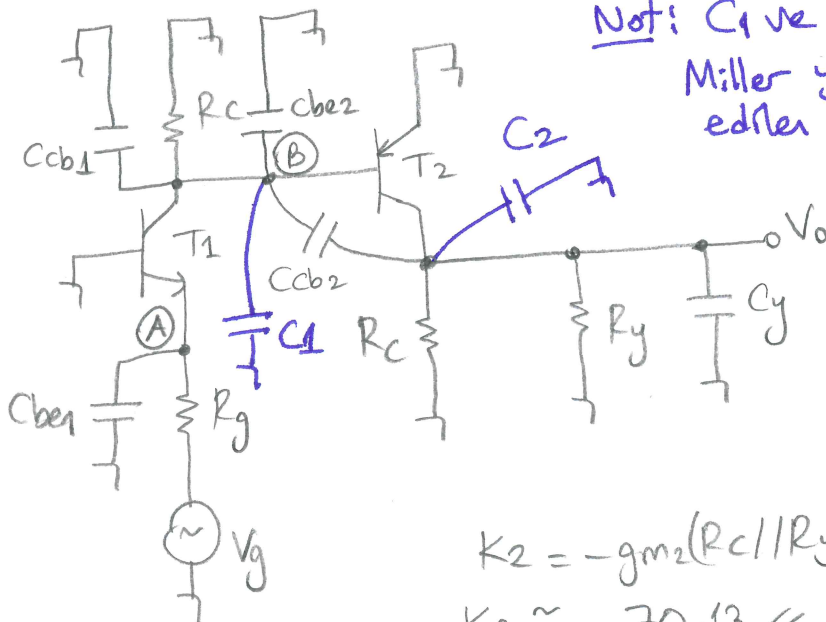 Not: C1 ve
Miller
ediler
Rc
Cbe2
Ccb1
B
C2
T2
T1
Ccb2
Vo
A
C1
Rc
Ry
Cy
Cbe1
Rg
Vg
K2 = -gm2(Rc//Ry